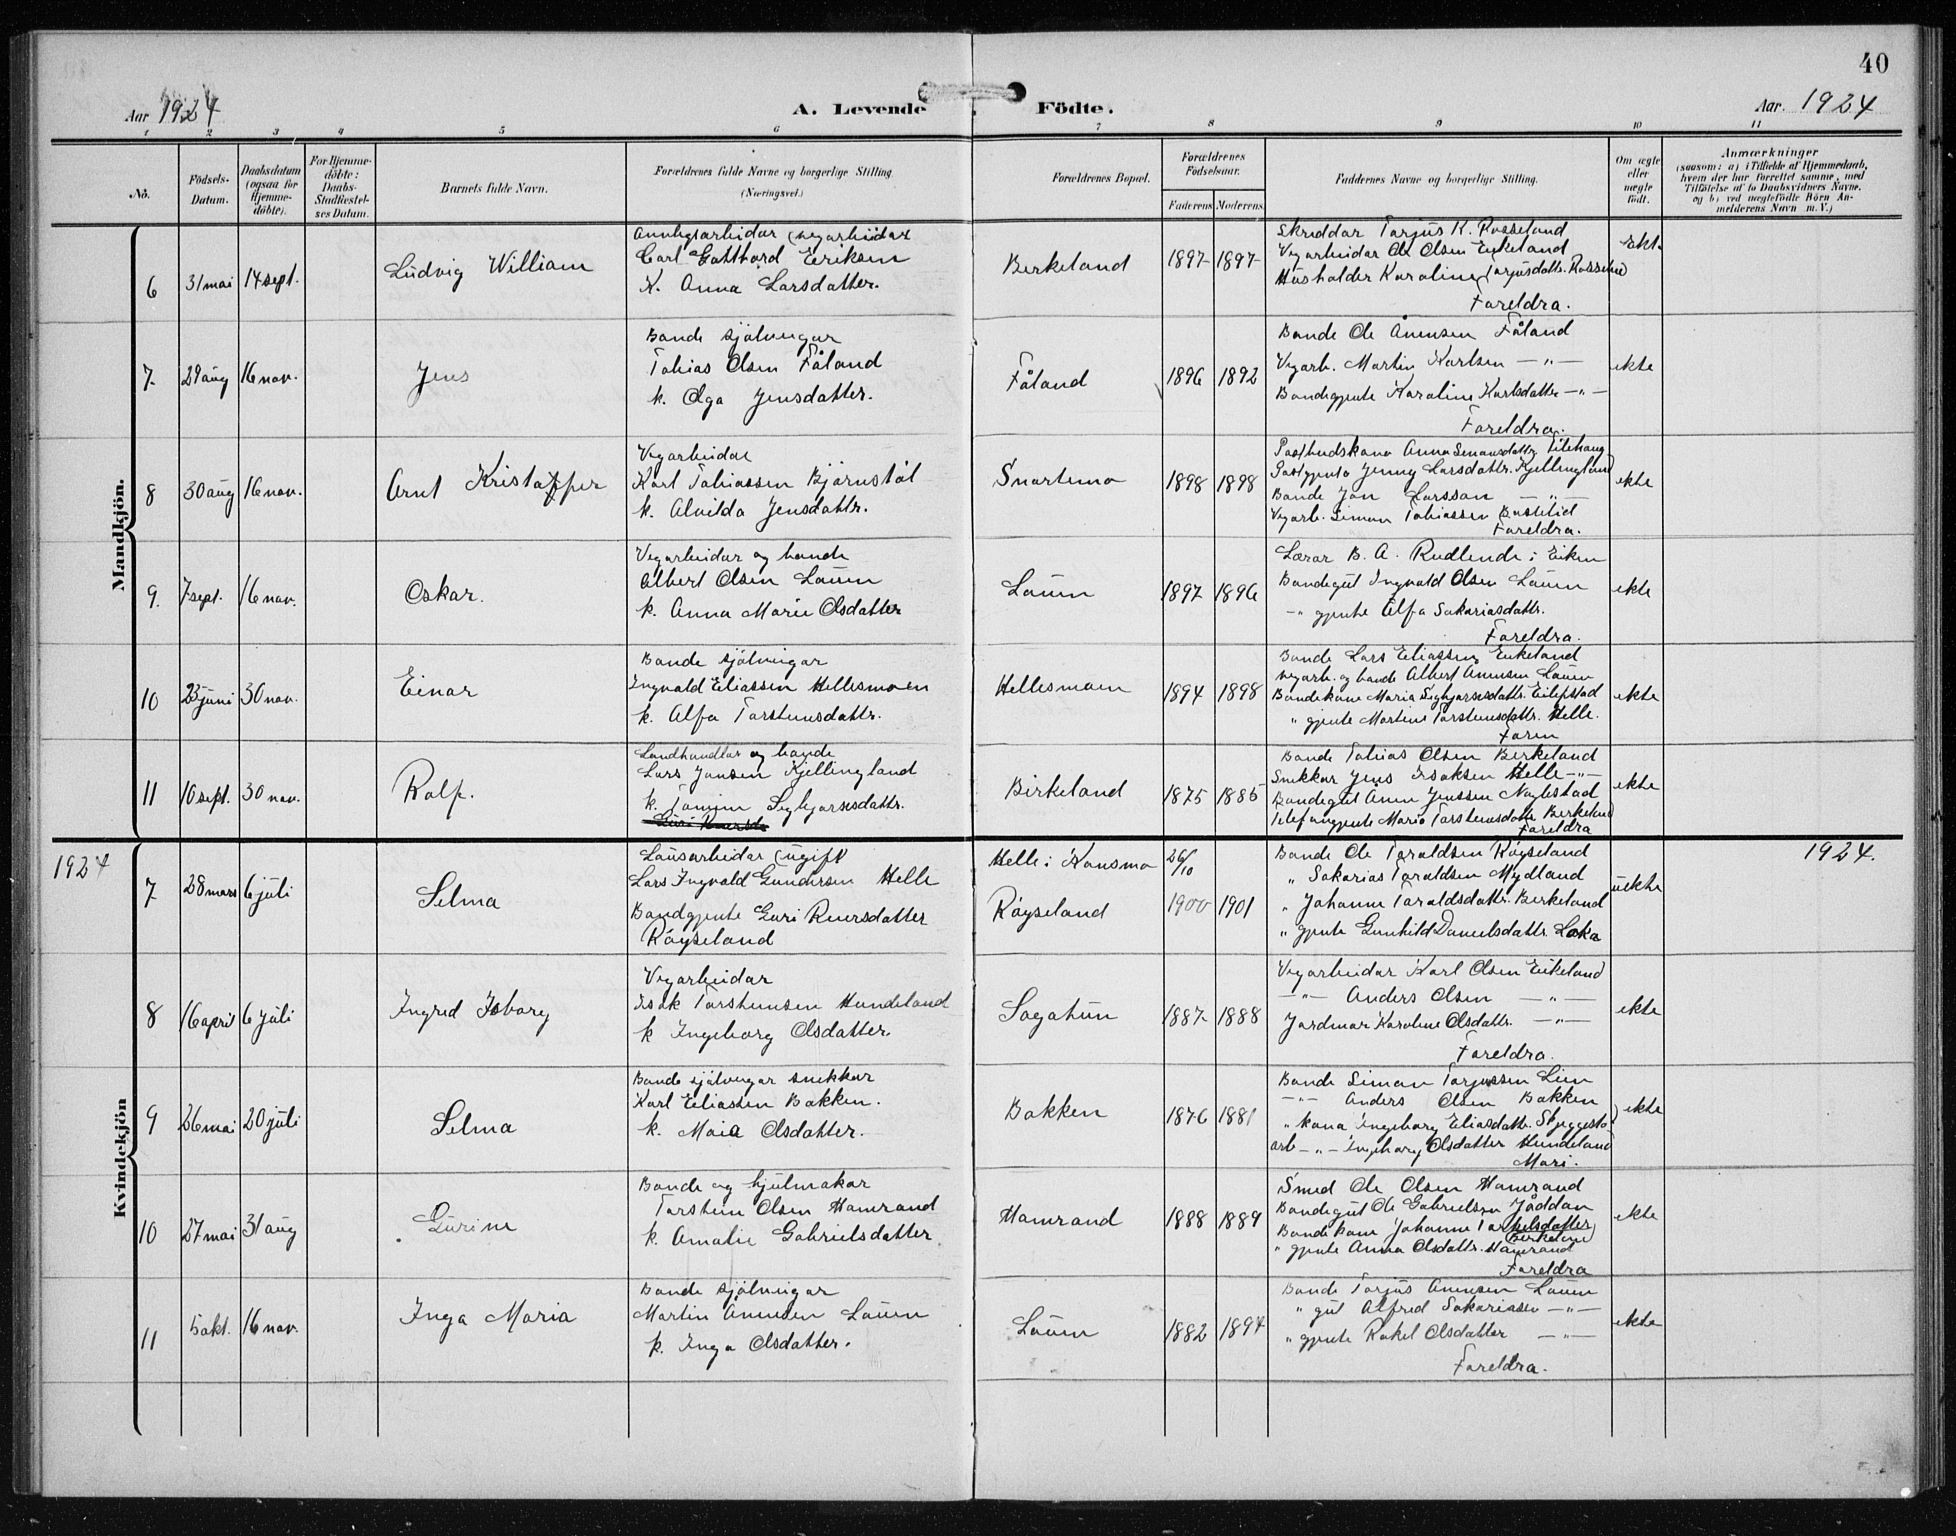 40
Aar 1924
A. Levende Födte.
Aar. 1924
1 2 3 4 5 6 7 8 9 10 11
No.
Födsels-Datum.
Daabsdatum (ogsaa for Hjemme-döbte).
For Hjemme-döbte: Daabs-Stadfestel-ses Datum.
Barnets fulde Navn.
Forældrenes fulde Navne og borgerlige Stilling. (Næringsvei.)
Forældrenes Bopæl.
Forældrenes Födselsaar.
Faderens Moderens
Faddernes Navne og borgerlige Stilling.
Om ægte eller uægte födt.
Anmærkninger
(saasom: a) i Tilfælde af Hjemmedaab, hvem der har forrettet samme, med Tilföielse af to Daabsvidners Navne, og b) ved uægtefödte Börn An-melderens Navn m. V.)
Mandkjön.
6 31 mai 14 sept.
Ludvig William
Annlegsarbeidar (vegarbeidar
Carl Gotthard Eriksen
K. Anna Larsdatter.
Birkeland
1897 1897
Skreddar Tarjus K. Rosseland
Vegarbeidar Ole Olsen Eikeland
Husholder Karoline Tarjusdattr. Rosseland
Foreldra.
Ekt.
7. 29 aug 16 nov.
Jens
Bonde sjölveigar
Tobias Olsen Fåland
k. Olga Jensdatter.
Fåland
1896 1892
Bonde Ole Ånensen Fåland
Vegarb. Martin Karlsen —"—
Bondegjente Karoline Karlsdatter —"—
Foreldra.
ekte
8 30 aug 16 nov.
Arnt Kristoffer
Vegarbeidar
Karl Tobiassen Björnstöl
k. Alvilda Jensdattr.
Snartemo
1898 1898
Postbudskona Anna Simonsdattr.
Postgjenta Jenny Larsdattr. Kjellingland
Bonde Jon Larsson —"—
Vegarb. Simon Tobiassen
Foreldra.
ekte
9. 7 sept. 16 nov.
Oskar.
Vegarbeidar og bonde
Albert Olsen Lauen
k. Anna Marie Olsdatter
Lauen
1897 1896
Lærar B. A. Rudlende i Eiken
Bondegut Ingvald Olsen Lauen
—" gjente Alfa Sakariasdattr.
Foreldra.
ekte
10 23 juni 30 nov.
Einar
Bonde sjölveigar
Ingvald Eliassen Hellesmoen
k. Alfa Torsteinsdattr.
Hellesmoen
1894 1898
Bonde Lars Eliassen Eikeland
vegarb. og bonde Albert Anensen Lauen
Bondekone Maria Sigbjørnsdattr. Eilefstad
" gjente Martine Torsteinsdattr. Helle.
Faren
ekte
11 10 sept. 30 nov.
Rolf.
Landhandlar og bonde
Lars Jonsen Kjellingland
k. Tomine Sigbjørnsdattr.
Birkeland
1875 1885
Bonde Tobias Olsen Birkeland
Snekkar Jens Isaksen Helle —"—
Bondegut Ånen Jenssen
Telefongjente Maria Torsteinsdattr. Birkeland
Foreldra
ekte
Kvindekjön
1924
1924.
7 28 mars 6 juli
Selma
Lausarbeidar (ugift
Lars Ingvald Gundersen Helle
Bondgjente Guri Reiersdatter
Röyseland
Helle i Konsmo
Röyseland
26/10
1900 1901
Bonde Ole Taraldsen Röyseland
" Sakarias Taraldsen Mydland
" Johanne Taraldsdattr. Birkeland
" gjente Gunhild Danielsdattr. Loka
uekte
8 16 april 6 juli
Ingrid Isborg
Vegarbeidar
Isak Torsteinsen Hundeland
k Ingeborg Olsdatter.
Sogatun
1887 1888
Vegarbeidar Karl Olsen Eikeland
—"— Anders Olsen —"—
Jordmor Karoline Olsdattr. —"—
Foreldra.
ekte
9 26 mai 20 juli
Selma
Bonde sjölveigar snekkar
Karl Eliassen Bakken.
k. Maia Olsdatter.
Bakken
1876 1881
Bonde Simon Torjussen Lien
—"— Anders Olsen Bakken
" kona Ingeborg Eliasdattr.
arb —"— Ingeborg Olsdatter Hundeland
Mori.
ekte
10 27 mai 31 aug
Gurine
Bonde og hjulmakar
Torstein Olsen Homrand
k. Amalie Gabrielsdatter
Homrand
1888 1889
Smed Ole Olsen Homrand
Bondegut Ole Gabrielsen
Bondekone Johanne Torkelsdatter
Birkeland
" gjente Anna Olsdattr. Homrand
Foreldra
ekte
11 5 okt. 16 nov.
Inga Maria
Bonde sjölveigar
Martin Anensen Lauen
k. Inga Olsdatter.
Lauen
1882 1894
Bonde Tarjus Anensen Lauen
" gut Alfred Sakariassen —"—
" gjente Rakel Olsdatter —"—
Foreldra.
ekte